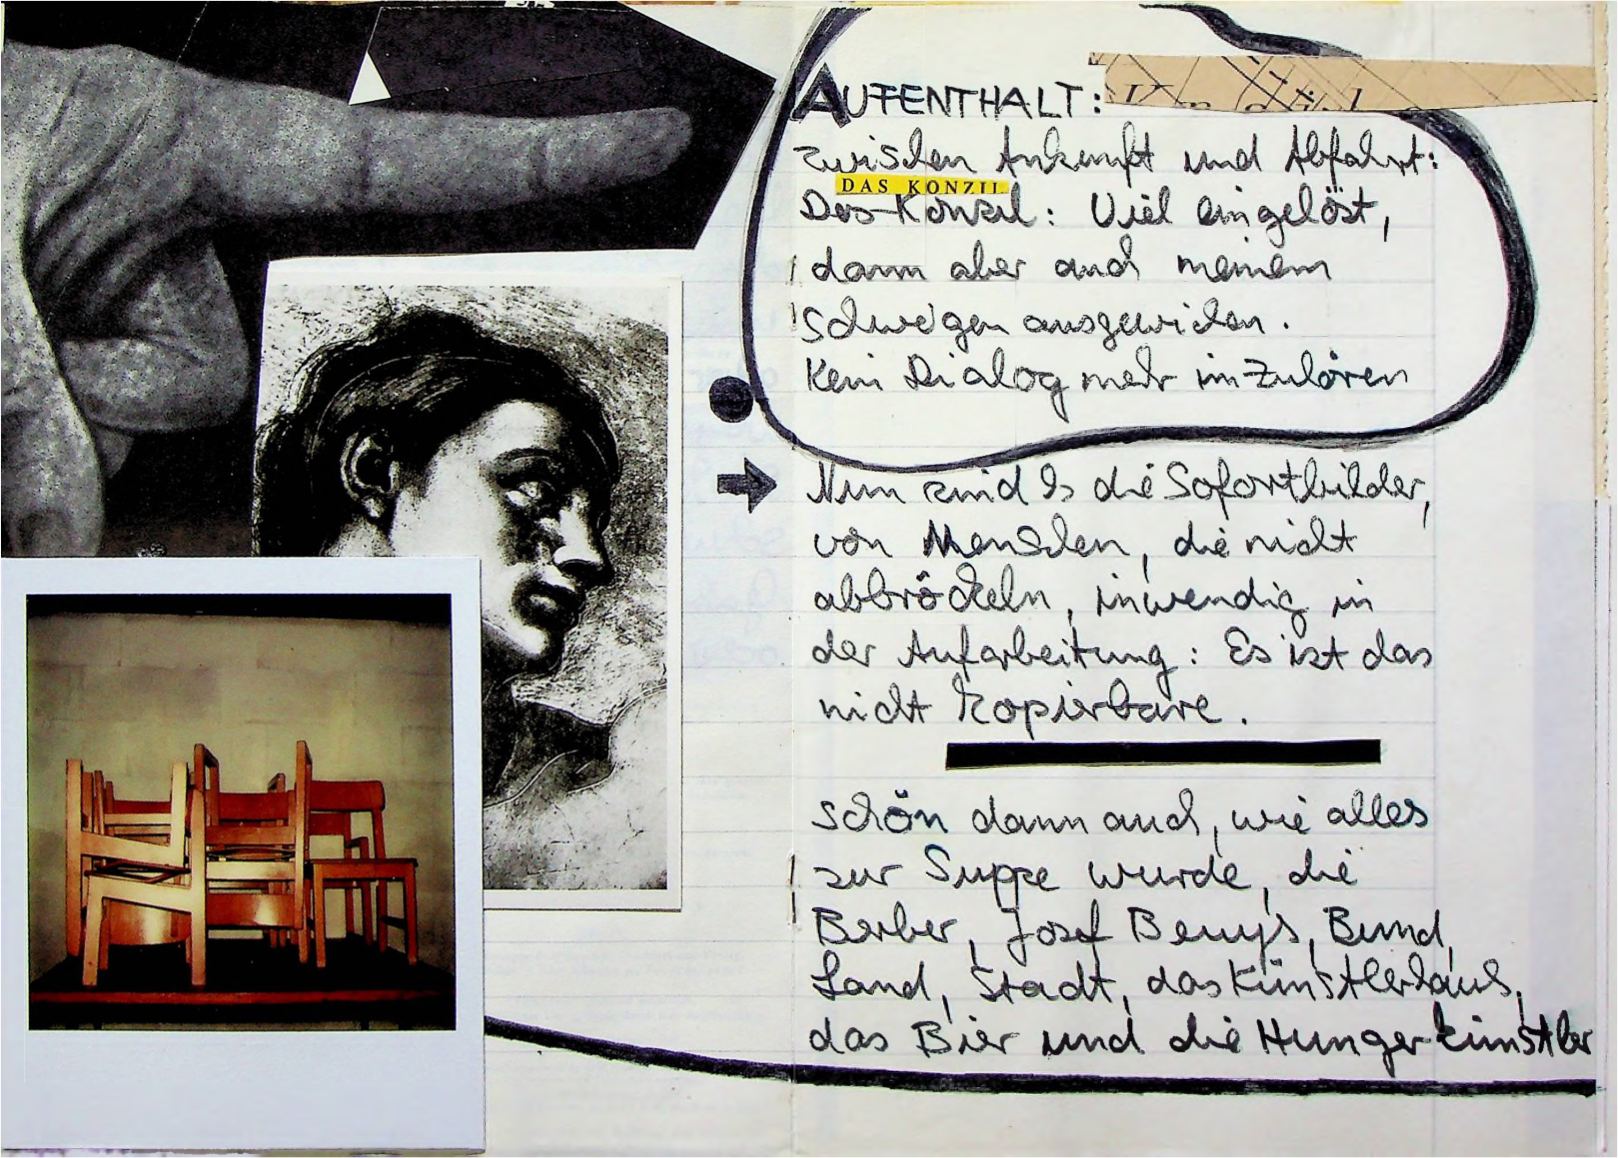 AUFENTHALT:
zwischen Ankunft und Abfahrt:
DAS KONZIL
Das Konzil: Viel eingelöst,
dann aber auch meinem
Schweigen ausgewichen.
Kein Dialog mehr im Zuhören
Nun sind es die Sofortbilder,
von Menschen, die nicht
abbröckeln, inwendig in
der Aufarbeitung: Es ist das
nicht Kopierbare.
schön dann auch, wie alles
zur Suppe wurde, die
Berber, Josef Beuys, Bund,
Land, Stadt, das Künstlerhaus,
das Bier und die Hungerkünstler